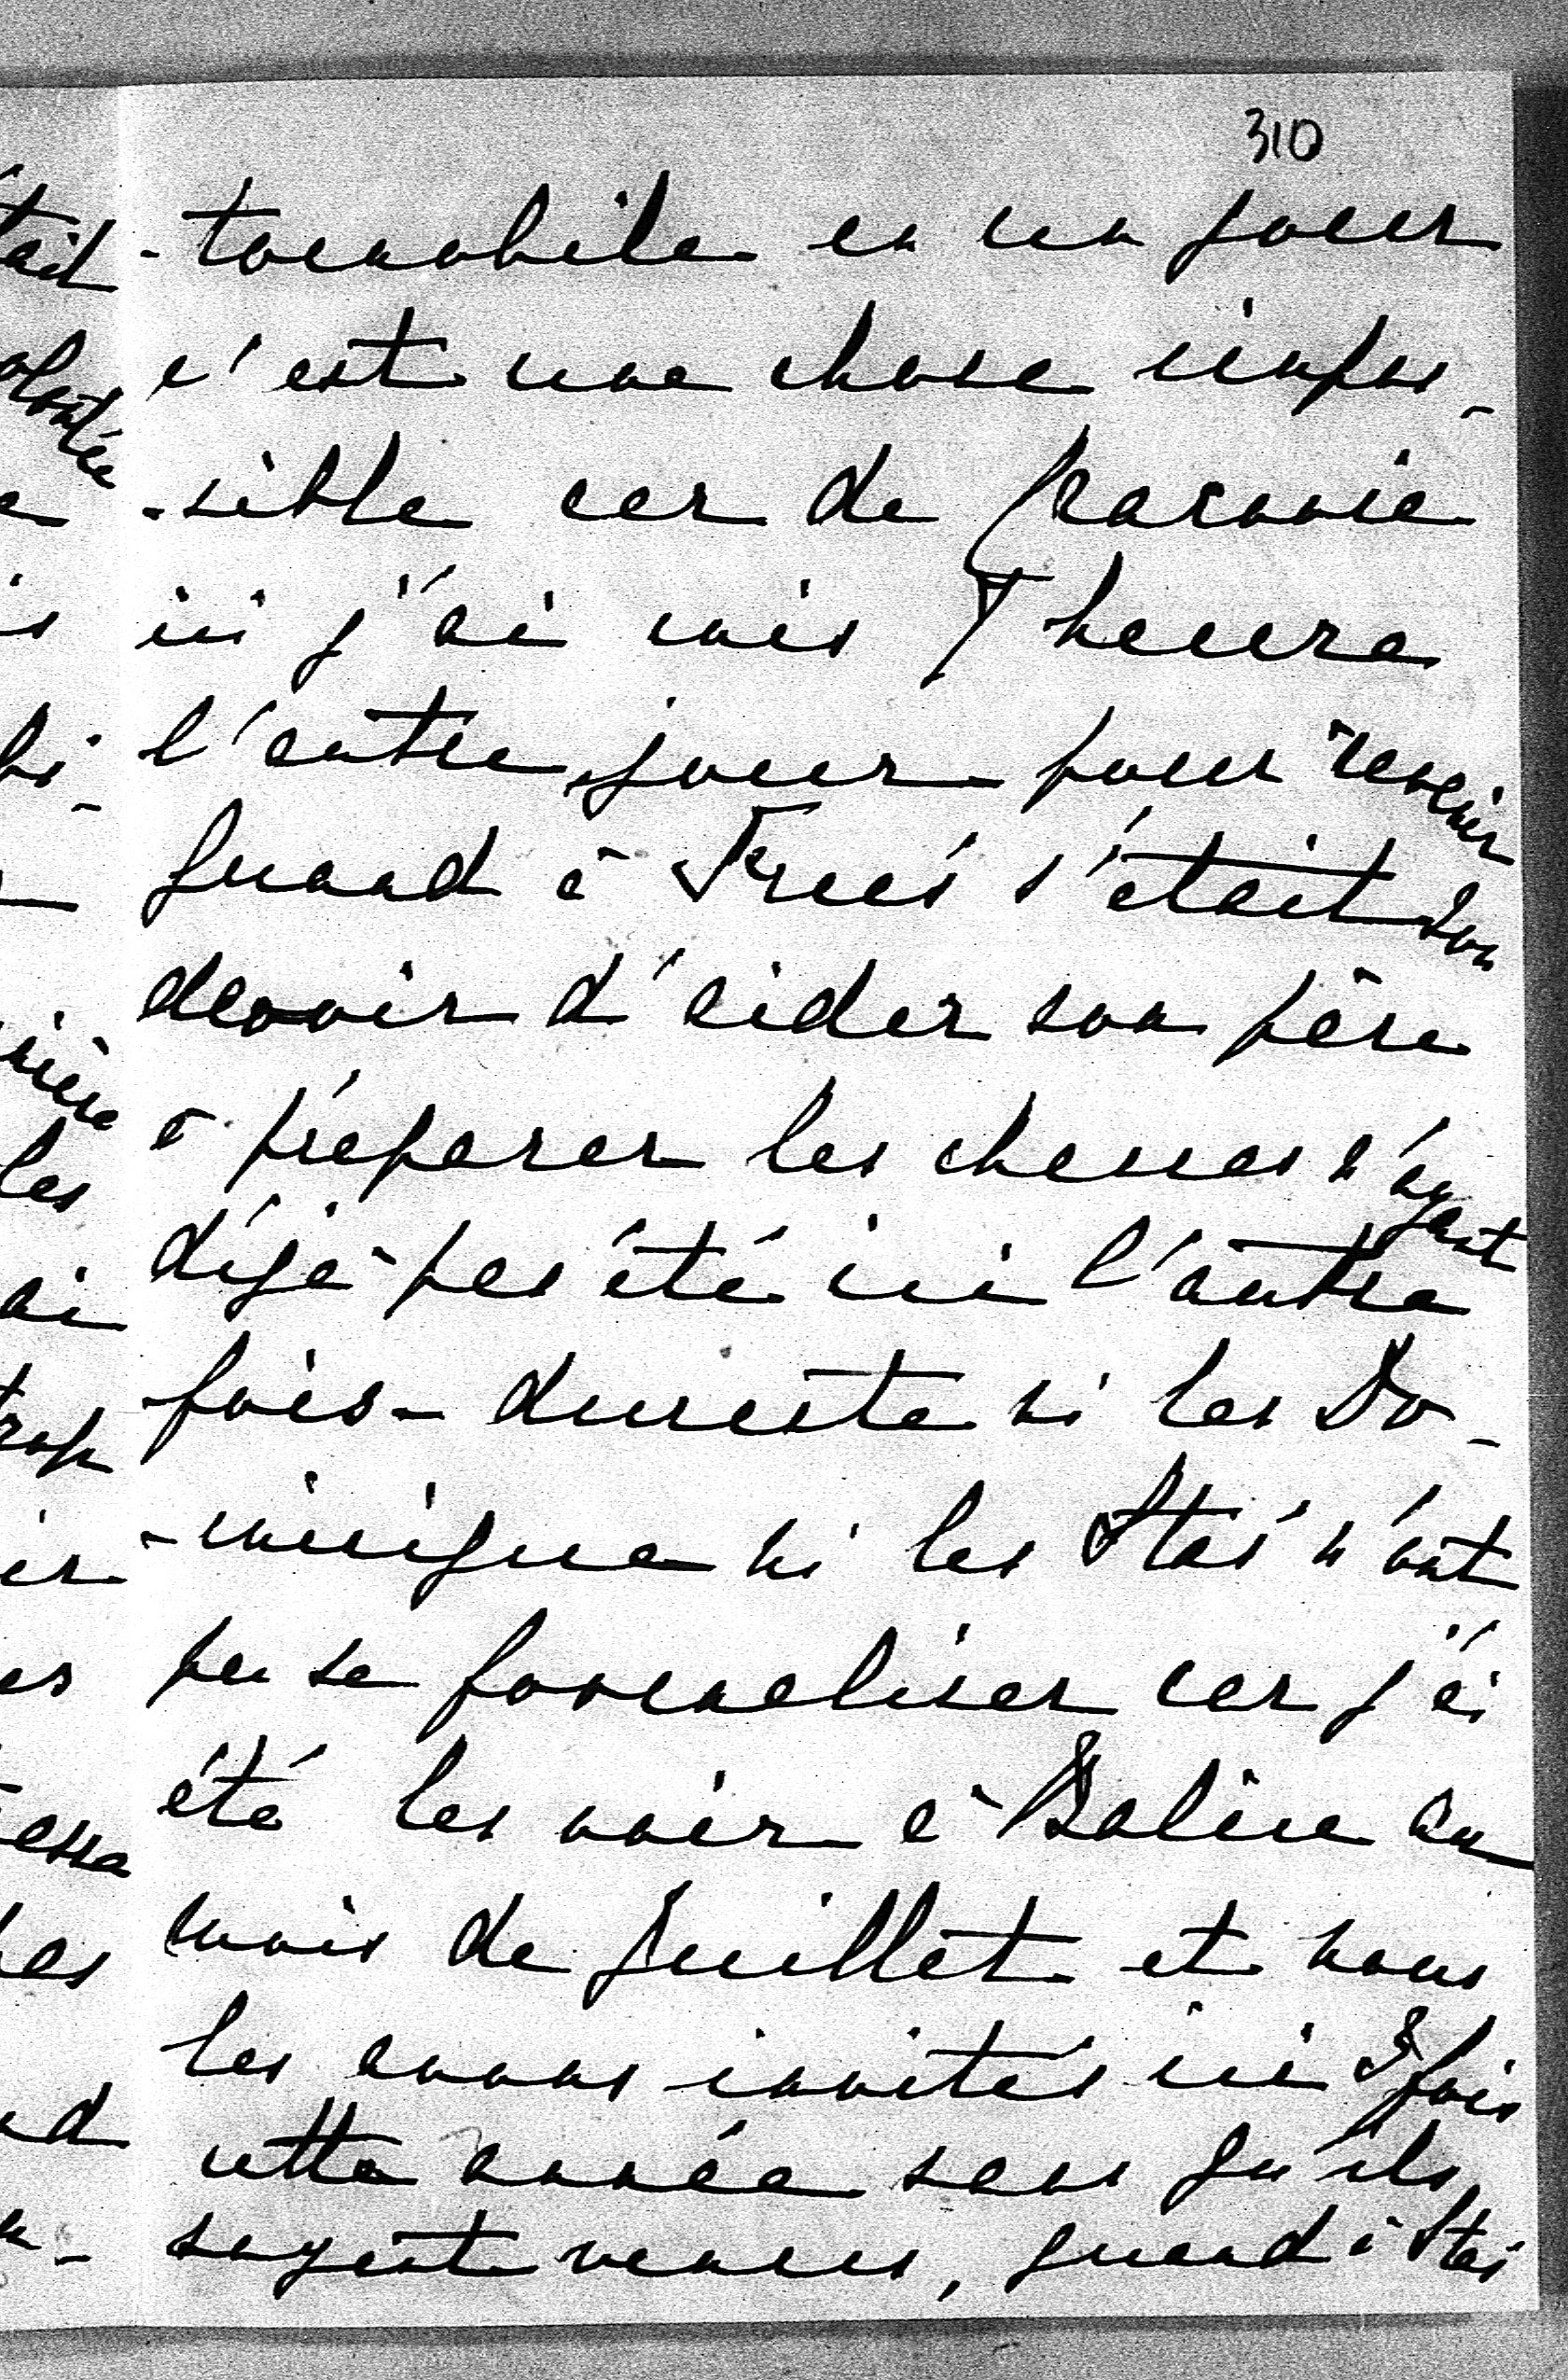 310
-tomobile en un jour
c'est une chose impos-
-sible car de Varsovie
ici j'ai mis 7 heure
l'autre jour pour revenir
quand à Frus' s'était son
devoir d'aider son père
à préparer les chasses n'ayant
déjà pas été ici l'autre
fois - dureste ni les Do-
-minique ni les Stas' n'ont
pu se formaliser car j'ai
été les voir à Balice au
mois de Juillet et nous
les avons invités ici 3 fois
cette année sans qu'ils
soyent venus, quand à Stas